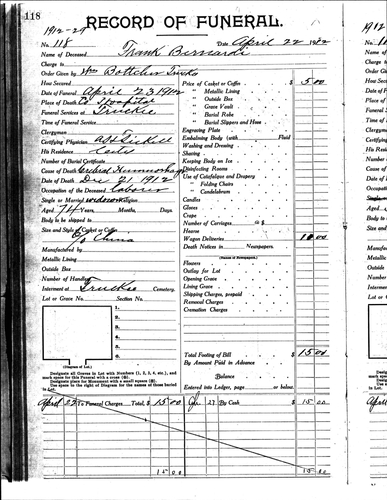 118
1912-29
RECORD OF FUNERAL.
No. 118 Date April 22 1912
Name of Deceased Frank Bernardi
Charge to
Order Given by Wm Bottcher Truckee
How Secured
Date of Funeral April 23 1912
Place of Death Hospital
Funeral Services at Truckee
Time of Funeral Service
Clergyman
Certifying Physician
His Residence
Number of Burial Certificate
Cause of Death
Date of Death 21 1912
Occupation of the Deceased Labour
Single or Married widower Religion
Aged 74 Years, Months, Days.
Body to be shipped to
Size and Style of Casket or Coffin
Manufactured by
Metallic Lining
Outside Box
Number of Handles
Interment at Truckee Cemetery.
Lot or Grave No. Section No.
1.
2.
3.
4.
5.
6.
(Diagram of Lot.)
Designate all Graves in Lot with Numbers (1, 2, 3, 4, etc.), and
mark space for this Funeral with a cross (X).
Designate place for Monument with a small square (□).
Use space to the right of Diagram for the names of those buried
in Lot.
Price of Casket or Coffin $ 5.00
" Metallic Lining
" Outside Box
" Grave Vault
" Burial Robe
" Burial Slippers and Hose
Engraving Plate
Embalming Body (with Fluid
Washing and Dressing
Shaving
Keeping Body on Ice
Disinfecting Rooms
Use of Catafalque and Drapery
" Folding Chairs
" Candelabrum
Candles
Gloves
Crape
Number of Carriages @ $
Hearse
Wagon Deliveries 10 00
Death Notices in Newspapers.
(Names of Newspapers.)
Flowers
Outlay for Lot
Opening Grave
Lining Grave
Shipping Charges, prepaid
Removal Charges
Cremation Charges
Total Footing of Bill $ 15 00
By Amount Paid in Advance
Balance
Entered into Ledger, page or below.
April 23 To Funeral Charges Total, $ 15 00
29 By Cash $ 15 00
15 00
15 00